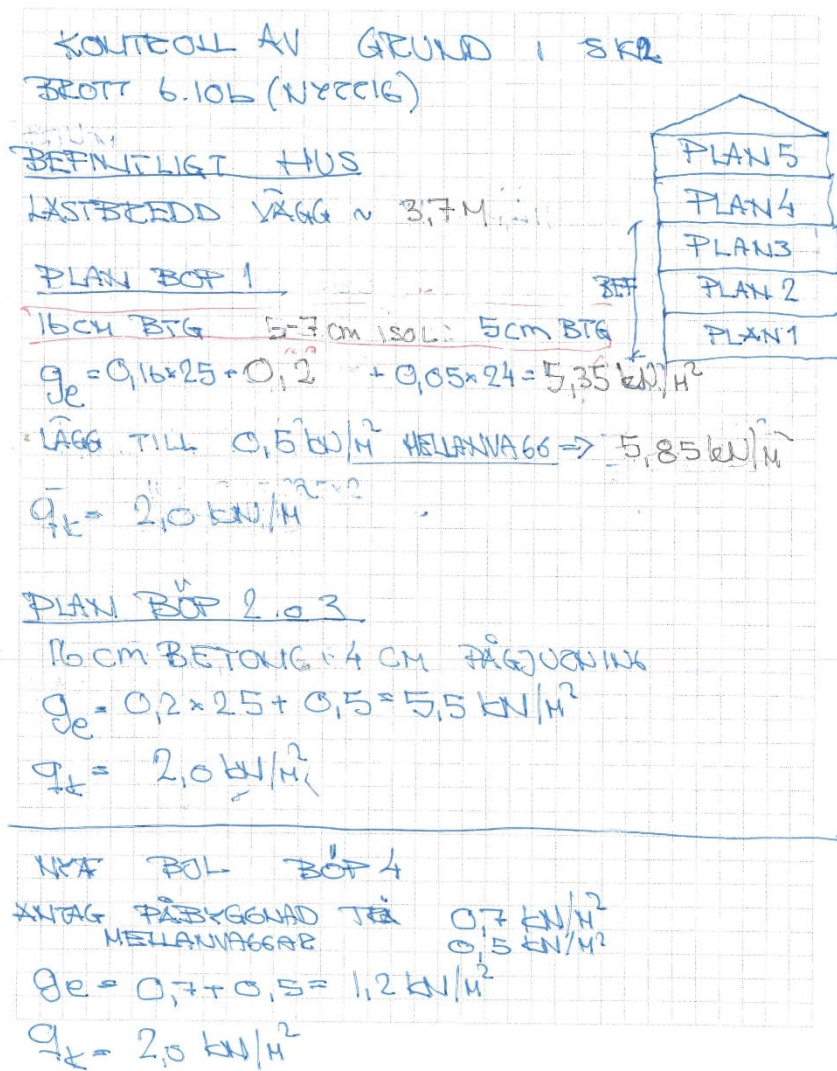 KONTROLL AV GRUND I SK2
BROTT 6.10b (NYBYG)
BEFINTLIGT HUS
LASTBREDD VÄGG ~ 3,7 M
PLAN 5
PLAN 4
PLAN 3
PLAN 2
PLAN 1
BEF
PLAN BOP 1
16 CM BTG 5-7 cm ISOL: 5 cm BTG
ge = 0,16×25 + 0,2 + 0,05×24 = 5,35 kN/M²
LÄGG TILL 0,5 kN/M² MELLANVÄGG => 5,85 kN/M²
qk = 2,0 kN/M²
PLAN BÖP 2 o 3
16 cm BETONG + 4 CM PÅGJUTNING
ge = 0,2×25 + 0,5 = 5,5 kN/M²
qk = 2,0 kN/M²
NYA BJL BÖP 4
ANTAG PÅBYGGNAD TRÄ 0,7 kN/M²
MELLANVÄGGAR 0,5 kN/M²
ge = 0,7 + 0,5 = 1,2 kN/M²
qk = 2,0 kN/M²